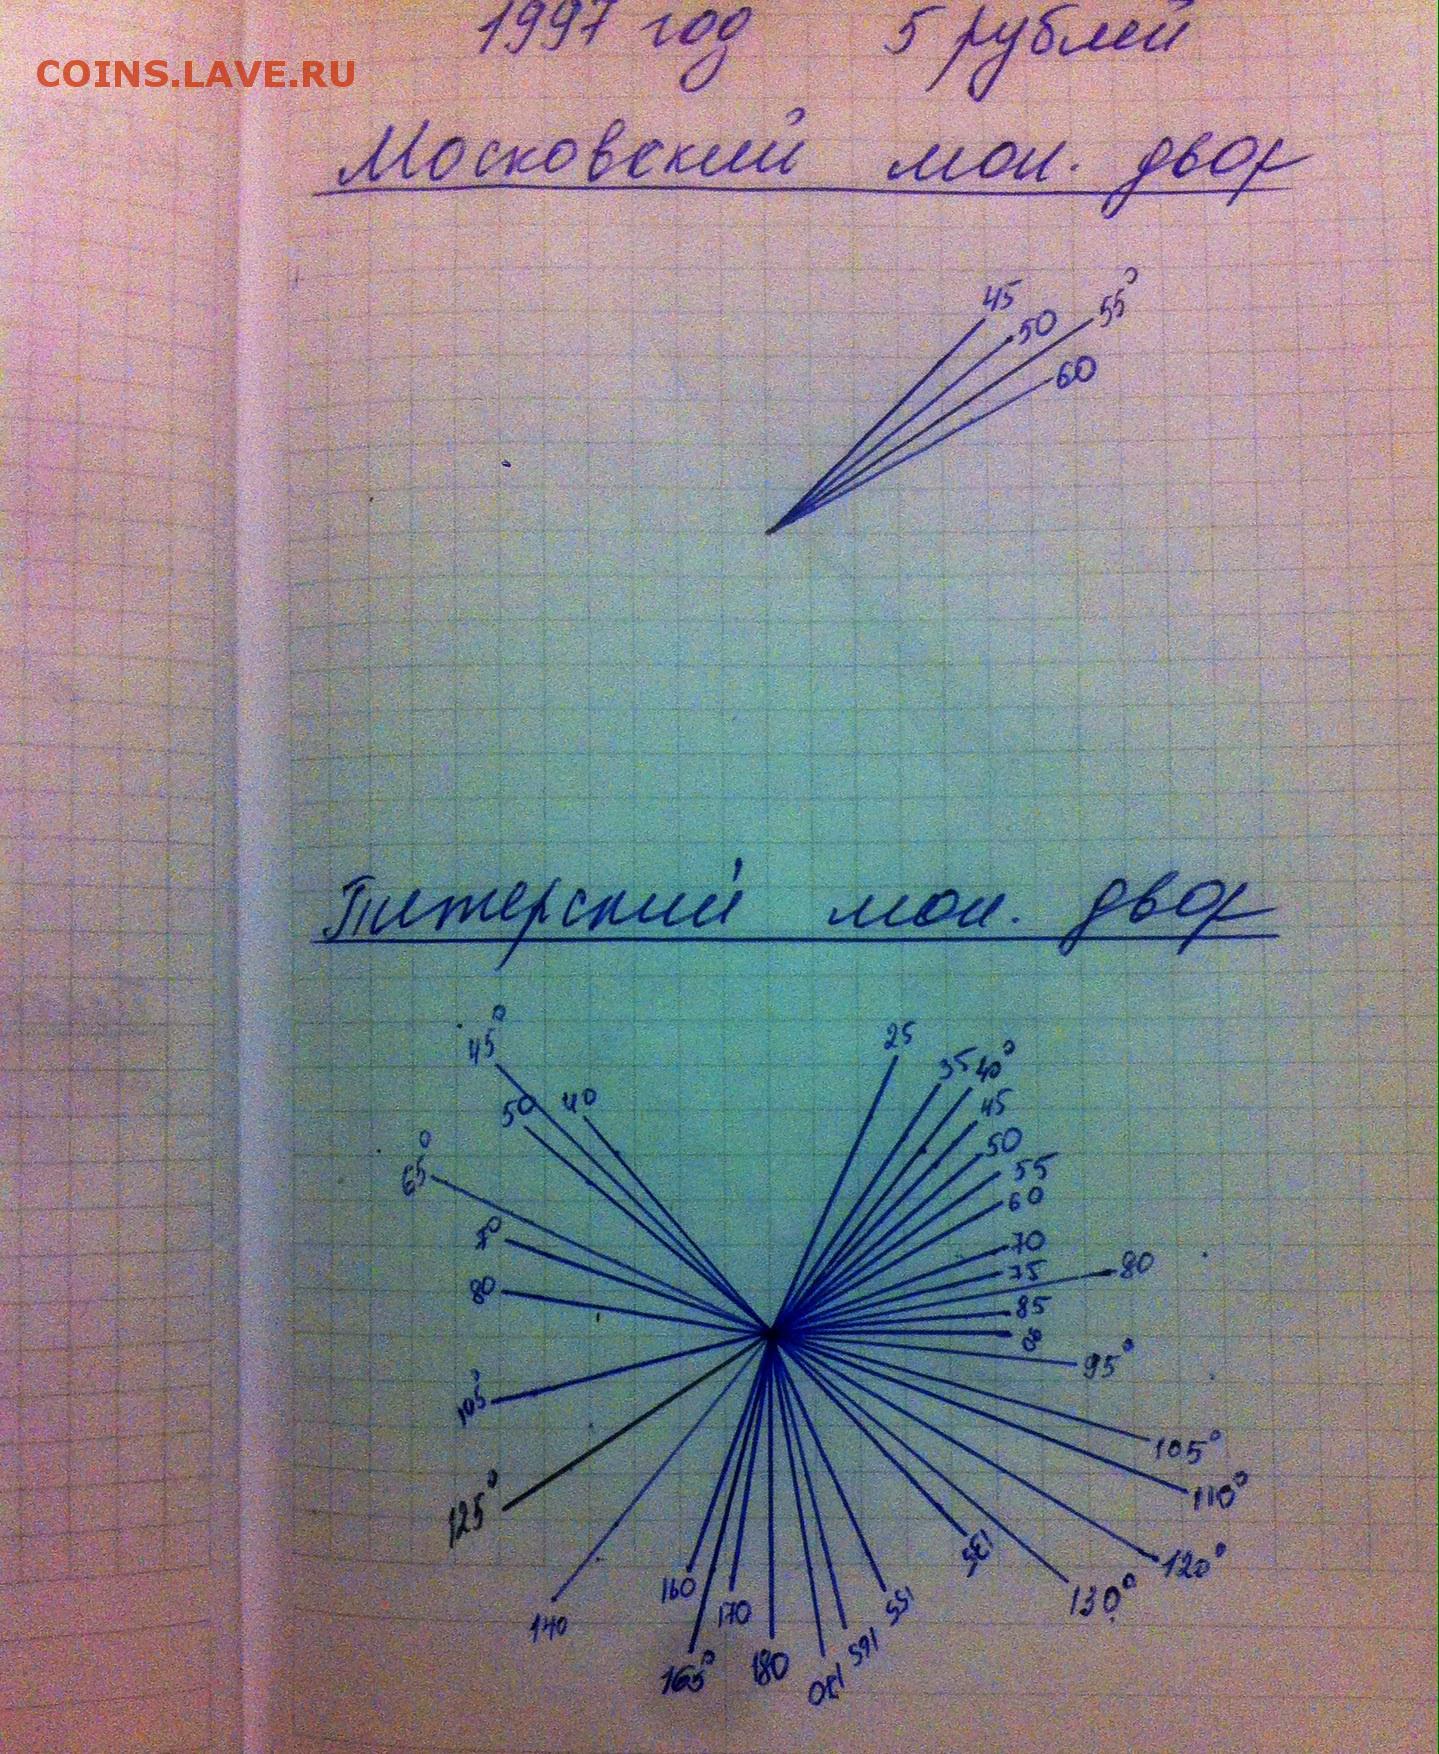 1997 год 5 рублей
COINS.LAVE.RU
Московский мон. двор
45
50
55°
60
Питерский мон. двор
45°
50
40
65°
70
80
105°
125°
140
160
165°
170
180
170
165
155
135
130°
120°
110°
105°
95°
90
85
80
75
70
60
55
50
45
40°
35
25